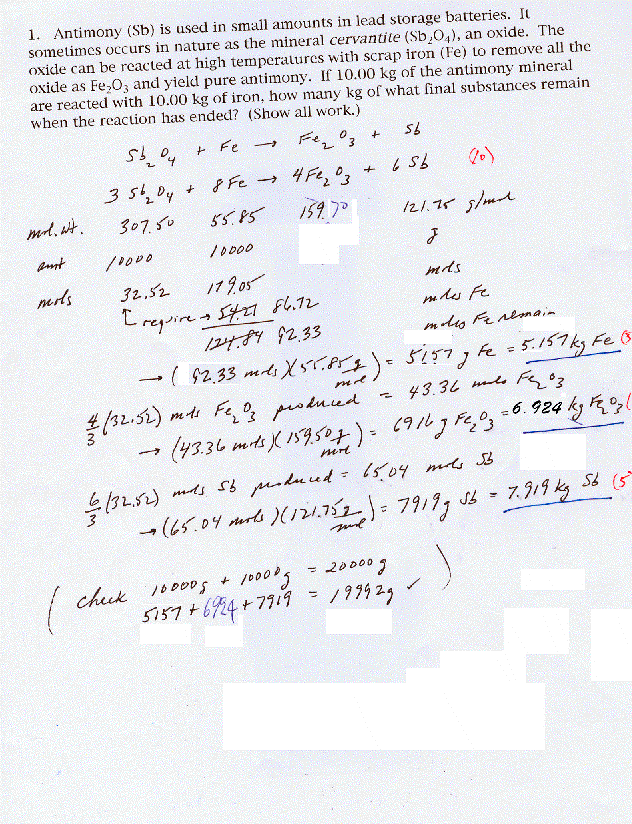 1. Antimony (Sb) is used in small amounts in lead storage batteries. It
sometimes occurs in nature as the mineral cervantite (Sb₂O₄), an oxide. The
oxide can be reacted at high temperatures with scrap iron (Fe) to remove all the
oxide as Fe₂O₃ and yield pure antimony. If 10.00 kg of the antimony mineral
are reacted with 10.00 kg of iron, how many kg of what final substances remain
when the reaction has ended? (Show all work.)
Sb₂O₄ + Fe → Fe₂O₃ + Sb
3 Sb₂O₄ + 8 Fe → 4 Fe₂O₃ + 6 Sb (10)
mol. wt. 307.50 55.85 159.70 121.75 g/mol
amt 10000 10000 g
mols 32.52 179.05 mols
require → 54.21 86.72 moles Fe
124.84 92.33 moles Fe remain
→ (92.33 mols)(55.85 g/mol) = 5157 g Fe = 5.157 kg Fe
4/3 (32.52) mols Fe₂O₃ produced = 43.36 moles Fe₂O₃
→ (43.36 mols)(159.50 g/mol) = 6916 g Fe₂O₃ = 6.924 kg Fe₂O₃
6/3 (32.52) mols Sb produced = 65.04 mols Sb
→ (65.04 mols)(121.75 g/mol) = 7919 g Sb = 7.919 kg Sb (5
( check 10000 g + 10000 g = 20000 g )
5157 + 6924 + 7919 = 19992 g ✓